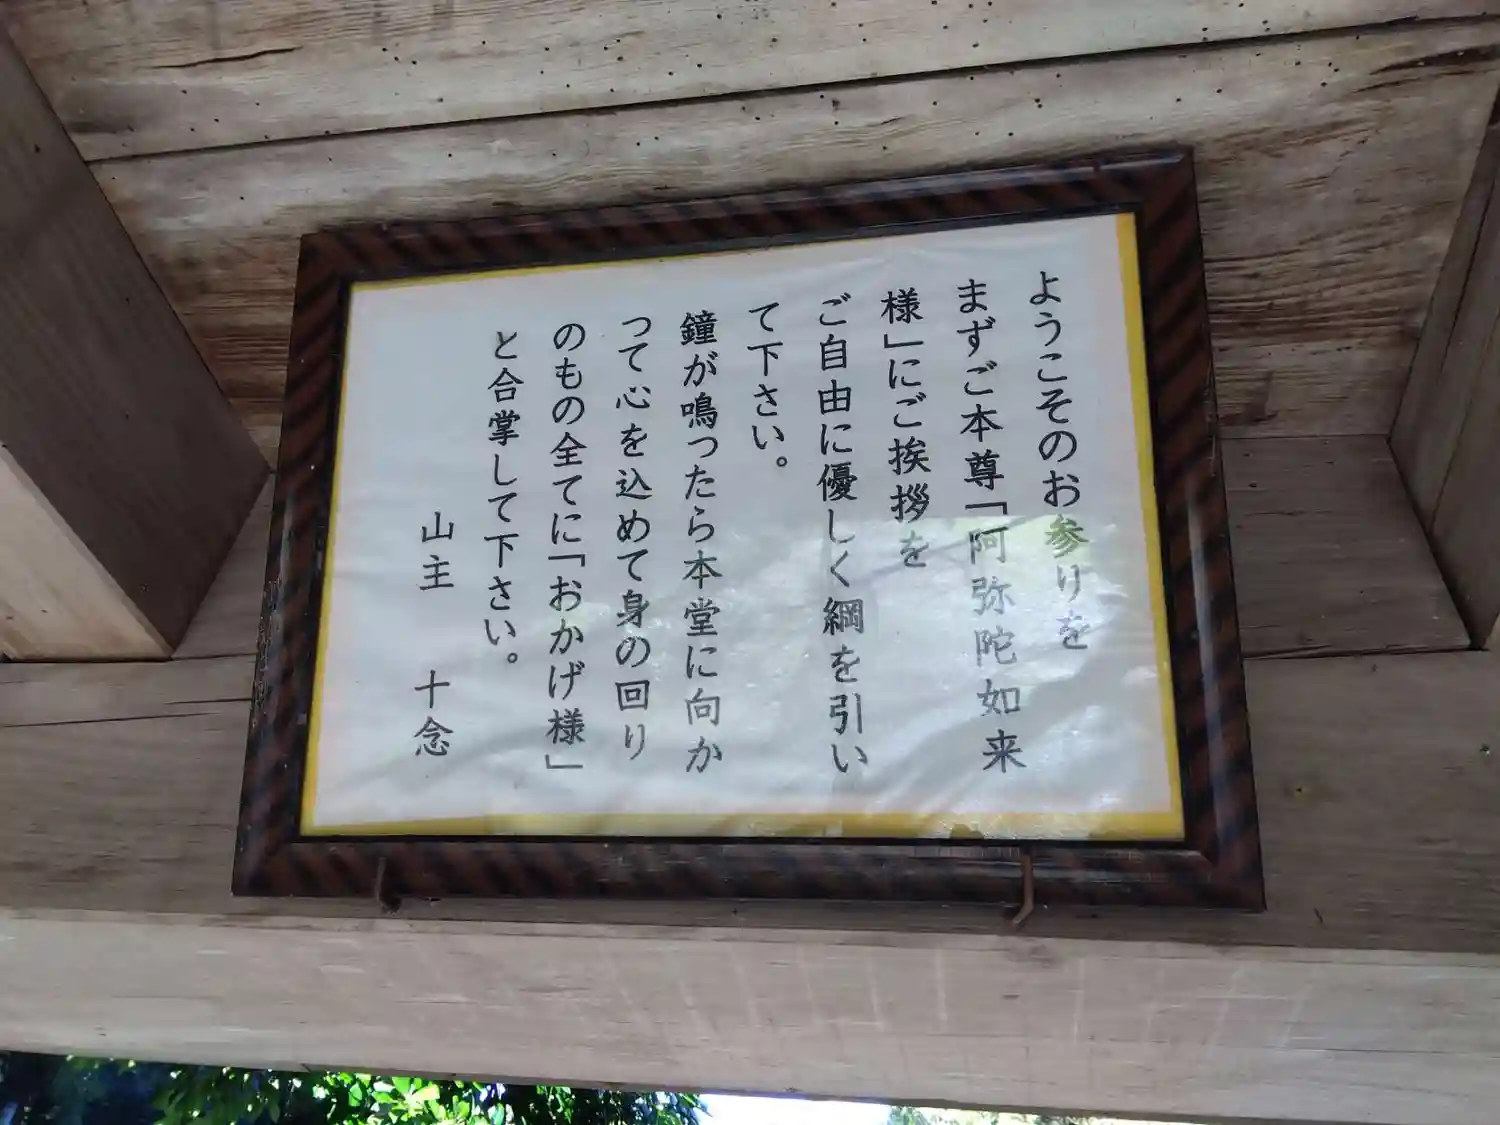 ようこそのお参りを
まずご本尊「阿弥陀如来
様」にご挨拶を
ご自由に優しく綱を引い
て下さい。
鐘が鳴ったら本堂に向か
って心を込めて身の回り
のもの全てに「おかげ様」
と合掌して下さい。
山主 十念